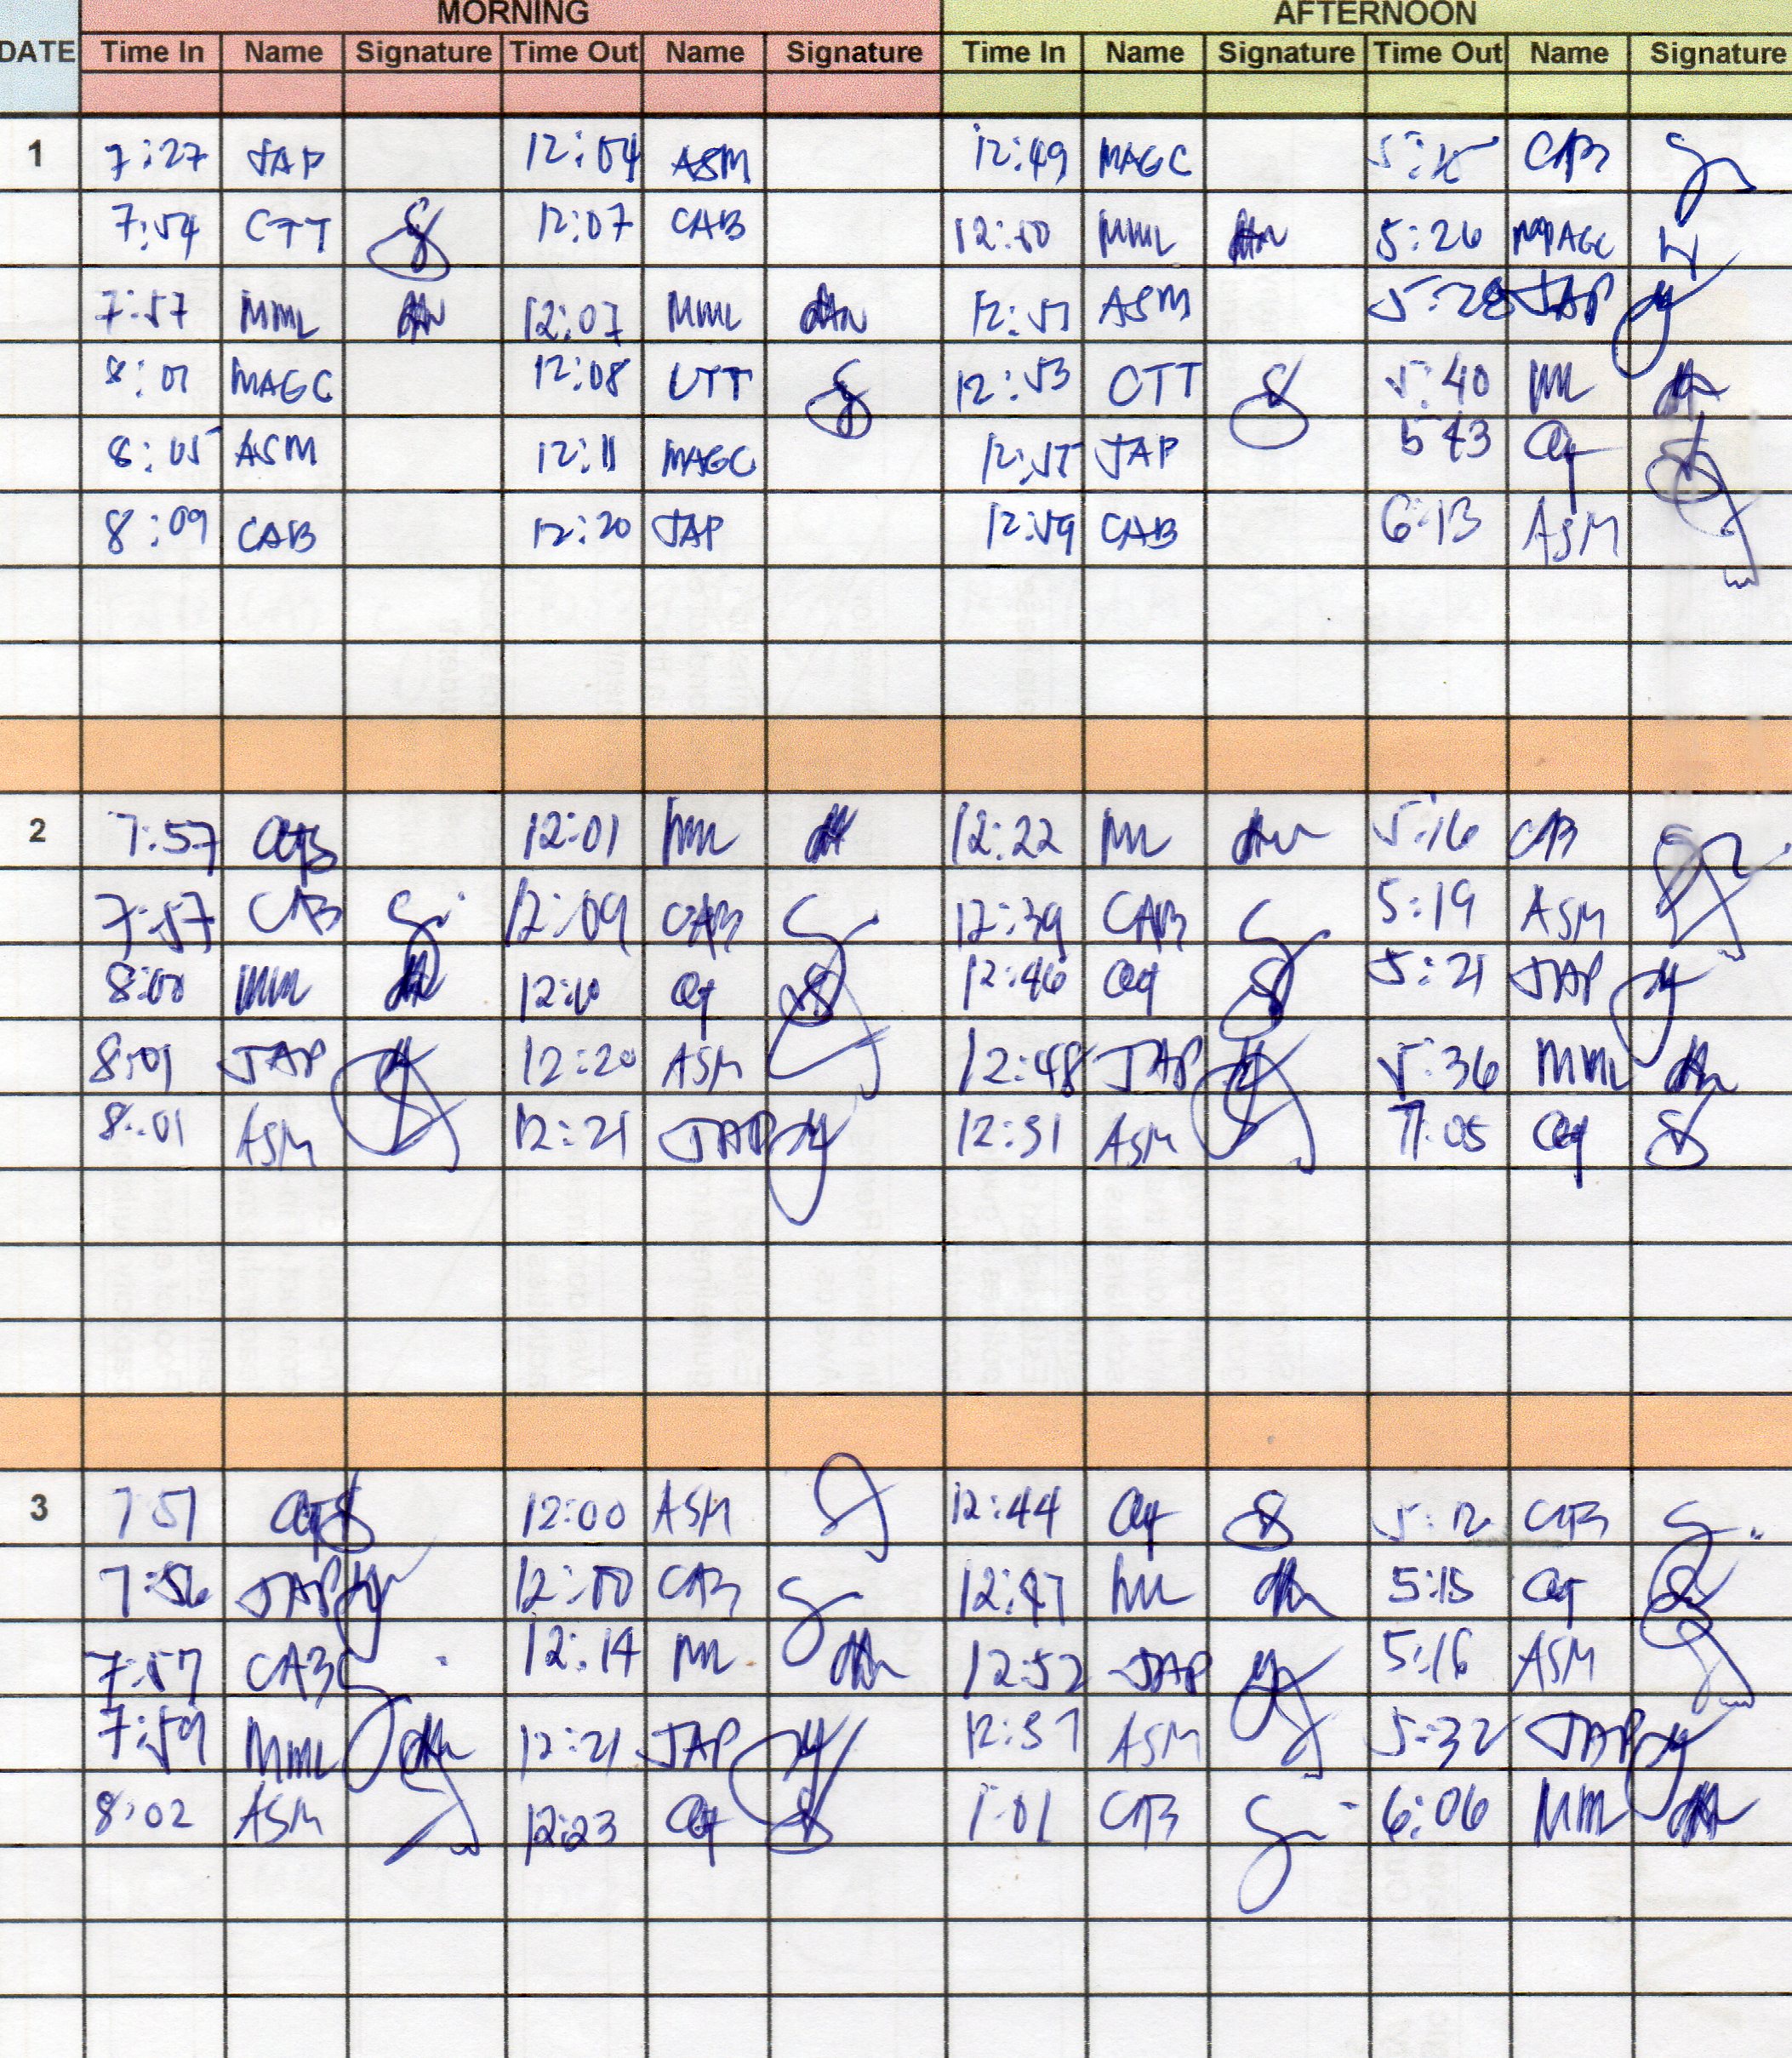 MORNING AFTERNOON
DATE Time In Name Signature Time Out Name Signature Time In Name Signature Time Out Name Signature
1 7:27 JAP 12:04 ASM 12:49 MAGC CAB
7:54 CTT 12:07 CAB 12:50 MML 5:26 MAGC
7:57 MML 12:07 MML 12:51 ASM 5:28 JAP
8:01 MAGC 12:08 CTT 12:53 CTT 5:40
8:05 ASM 12:11 MAGC 12:55 JAP 5:43
8:09 CAB 12:20 JAP 12:59 CAB 6:13 ASM
2 7:57 12:01 12:22 5:16 CAB
7:57 CAB 12:09 CAB 12:39 CAB 5:19 ASM
8:00 MML 12:10 12:46 5:21 JAP
8:01 JAP 12:20 ASM 12:48 JAP 5:36 MML
8:01 ASM 12:21 JAP 12:51 ASM 7:05
3 7:51 12:00 ASM 12:44 5:12 CAB
7:56 JAP 12:00 CAB 12:47 5:15
7:57 CAB 12:14 12:52 JAP 5:16 ASM
7:59 MML 12:21 JAP 12:57 ASM 5:32 JAP
8:02 ASM 12:23 1:01 CAB 6:06 MML